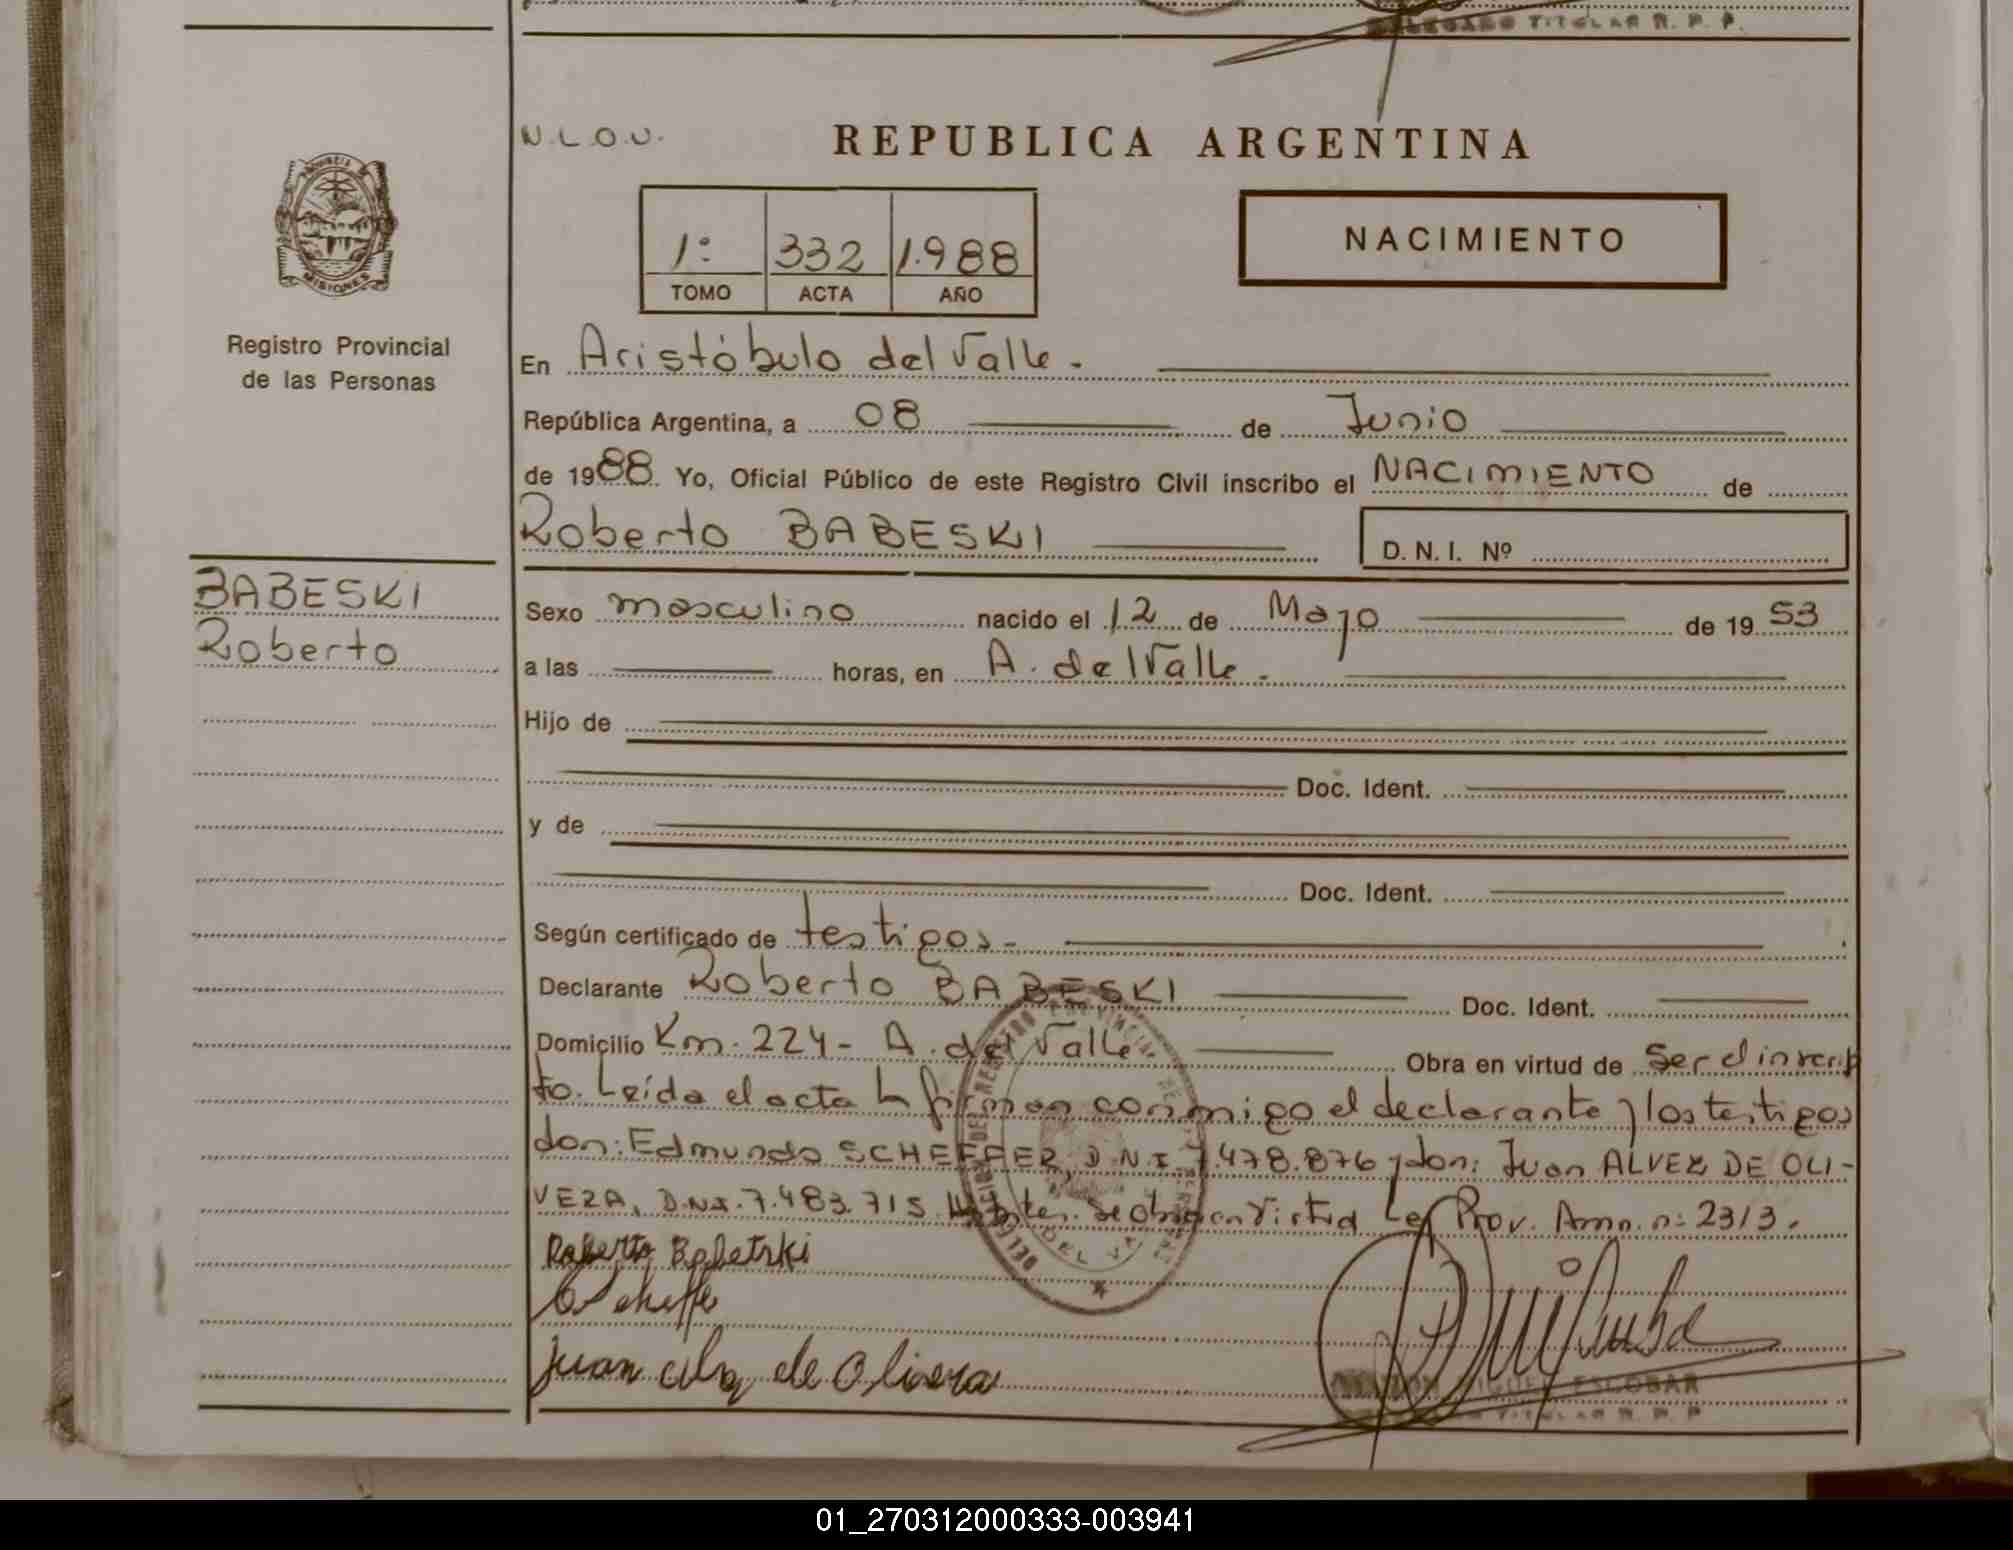 DELEGADO TITULAR R. P. P.
N.L.O.U.
REPUBLICA ARGENTINA
1º 332 1.988
TOMO ACTA AÑO
NACIMIENTO
MISIONES
Registro Provincial
de las Personas
En Aristóbulo del Valle.-
República Argentina, a 08 de Junio
de 1988. Yo, Oficial Público de este Registro Civil inscribo el NACIMIENTO de
Roberto BABESKI
D. N. I. Nº
BABESKI
Roberto
Sexo masculino nacido el 12 de Mayo de 1953
a las horas, en A. del Valle.
Hijo de
Doc. Ident.
y de
Doc. Ident.
Según certificado de testigos-
Declarante Roberto BABESKI Doc. Ident.
Domicilio Km. 224- A. del Valle Obra en virtud de Ser el inscrip
to. Leída el acta la firman conmigo el declarante y los testigos
don: Edmundo SCHEFFER, D.N.I. 7.478.876 y don: Juan ALVEZ DE OLI-
VERA, D.N.I. 7.483.715. Se obra en virtud Ley Prov. Amn. n: 2313.
Roberto Babetski
Scheffe
Juan alvz de Olivera
MIGUEL ESCOBAR
TITULAR R. P. P.
01_270312000333-003941